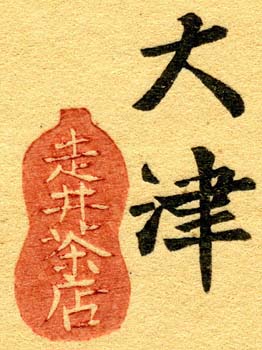 大津
走井茶店